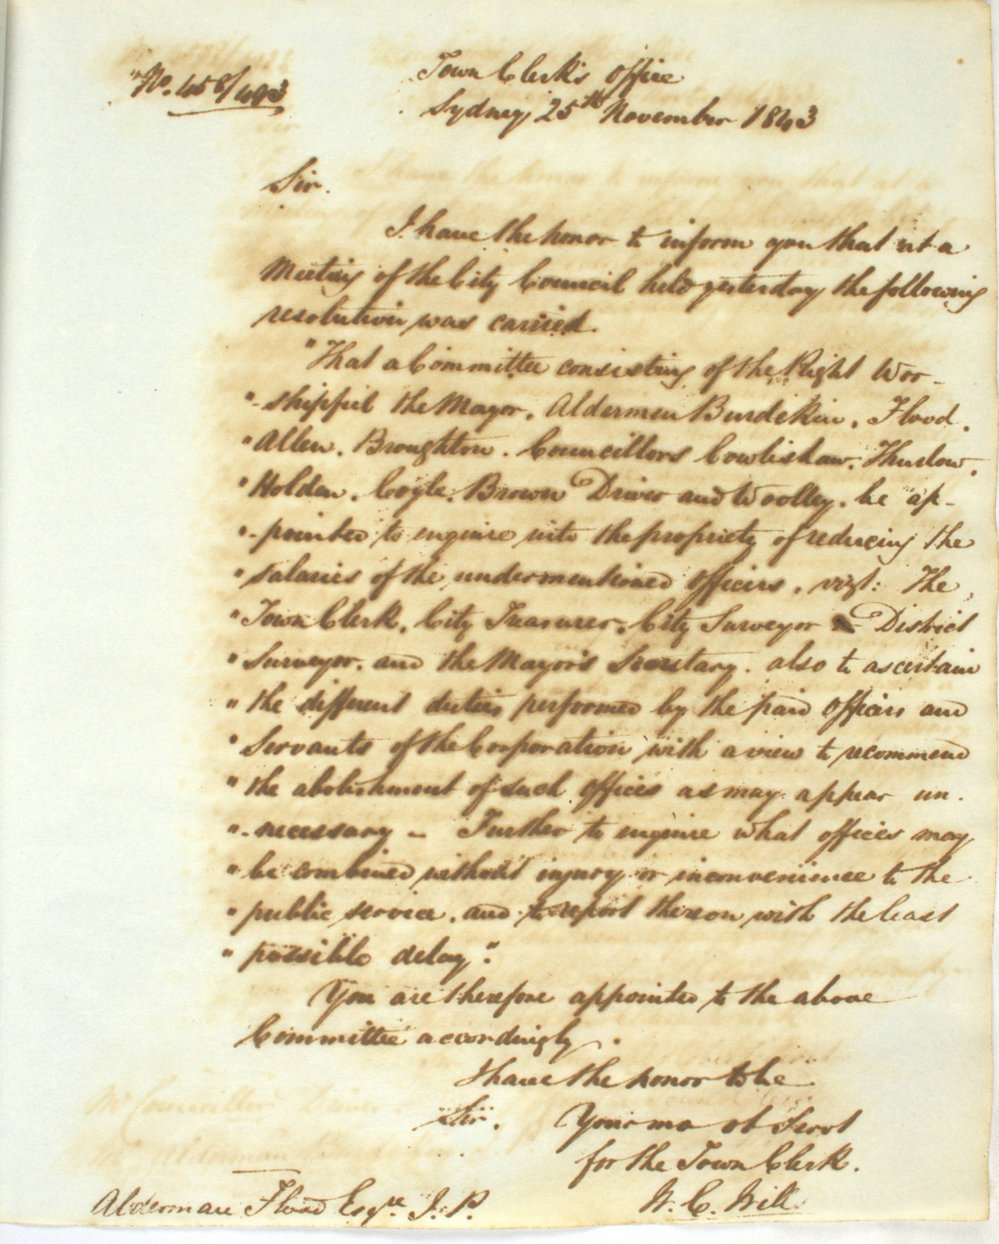 "No. 458/493
Town Clerk's Office
Sydney, 25th November 1843
Sir.
I have the honor to inform you that at a
Meeting of the City Council held yesterday the following
resolution was carried.
"That a Committee consisting of the Right Wor-
"-shipful the Mayor, Aldermen Burdekin, Flood,
"Allen, Broughton, Councillors Cowlishaw, Thurlow,
"Holden, Coyle, Brown Driver and Woolley, be ap-
"-pointed to inquire into the propriety of reducing the
"salaries of the undermentioned Officers, vizt: The,
"Town Clerk, City Treasurer, City Surveyor District
"Surveyor, and the Mayor's Secretary. also to ascertain
"the different duties performed by the paid Officers and
"Servants of the Corporation with a view to recommend
"the abolishment of such Offices as may appear un.
"-necessary - Further to inquire what offices may
"be combined without injury or inconvenience to the
"public service, and to report thereon with the least
"possible delay".
You are therefore appointed to the above
Committee accordingly.
I have the honor to be
Sir,
Your mo ob Servt
for the Town Clerk.
W. C. Will
Alderman Flood Esqre J.P.